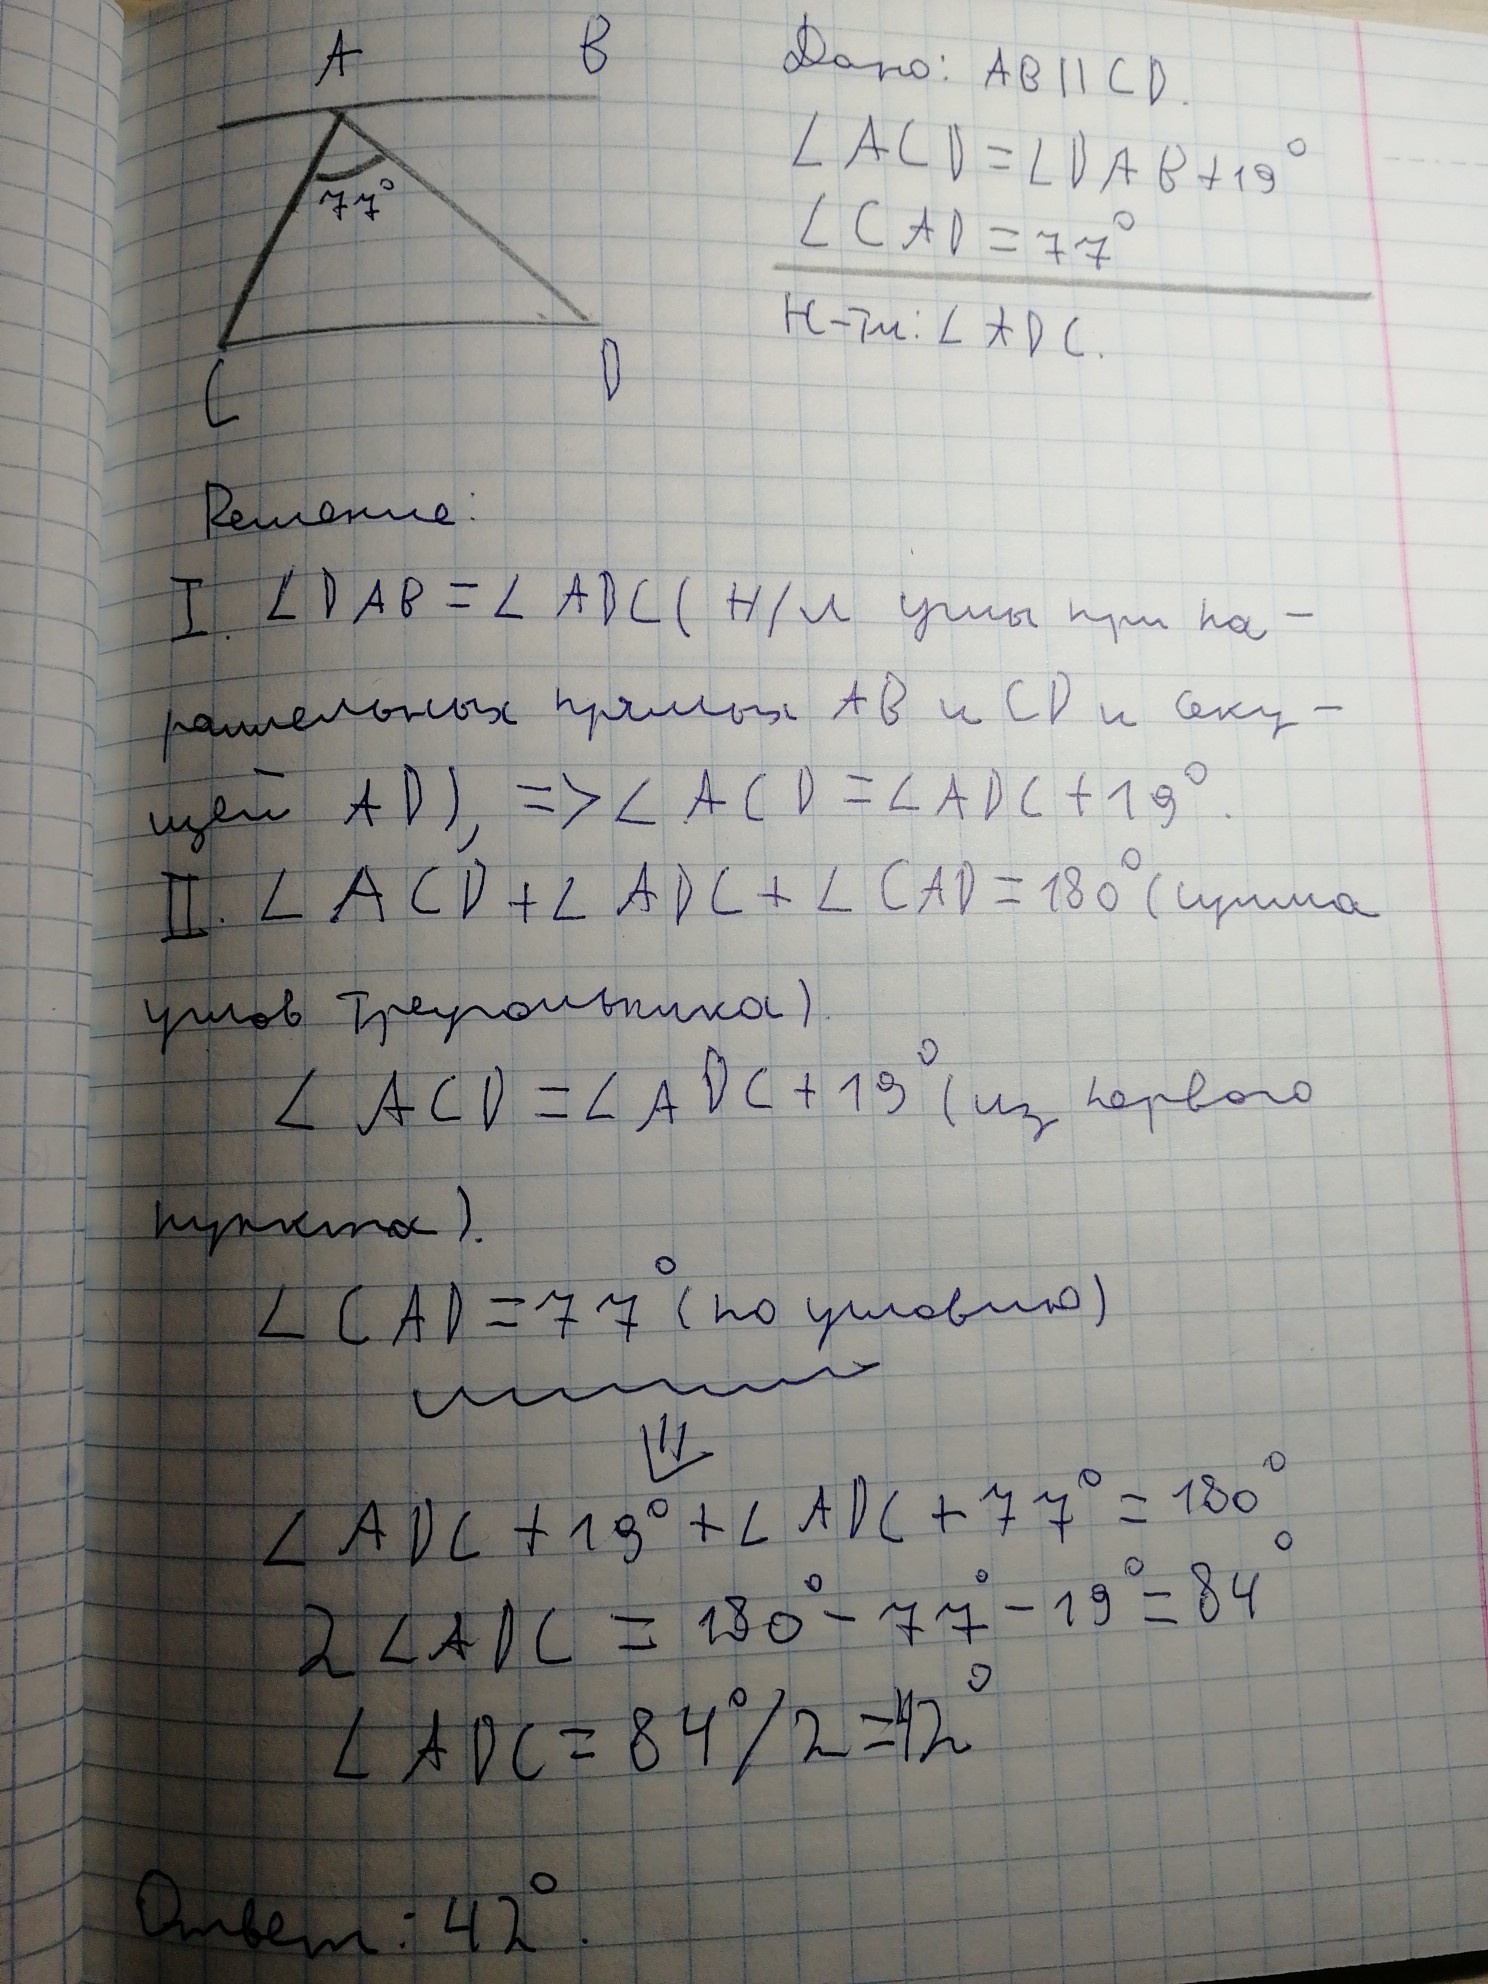 A B
77°
C D
Дано: AB || CD.
∠ACD=∠DAB+19°
∠CAD=77°
Н-ти: ∠ADC.
Решение:
I. ∠DAB=∠ADC (Н/л углы при па-
раллельных прямых AB и CD и секу-
щей AD), =>∠ACD=∠ADC+19°.
II. ∠ACD+∠ADC+∠CAD=180° (сумма
углов треугольника).
∠ACD=∠ADC+19° (из первого
пункта).
∠CAD=77° (по условию)
⇓
∠ADC+19°+∠ADC+77°=180°
2∠ADC=180°-77°-19°=84°
∠ADC=84°/2=42°
Ответ: 42°.